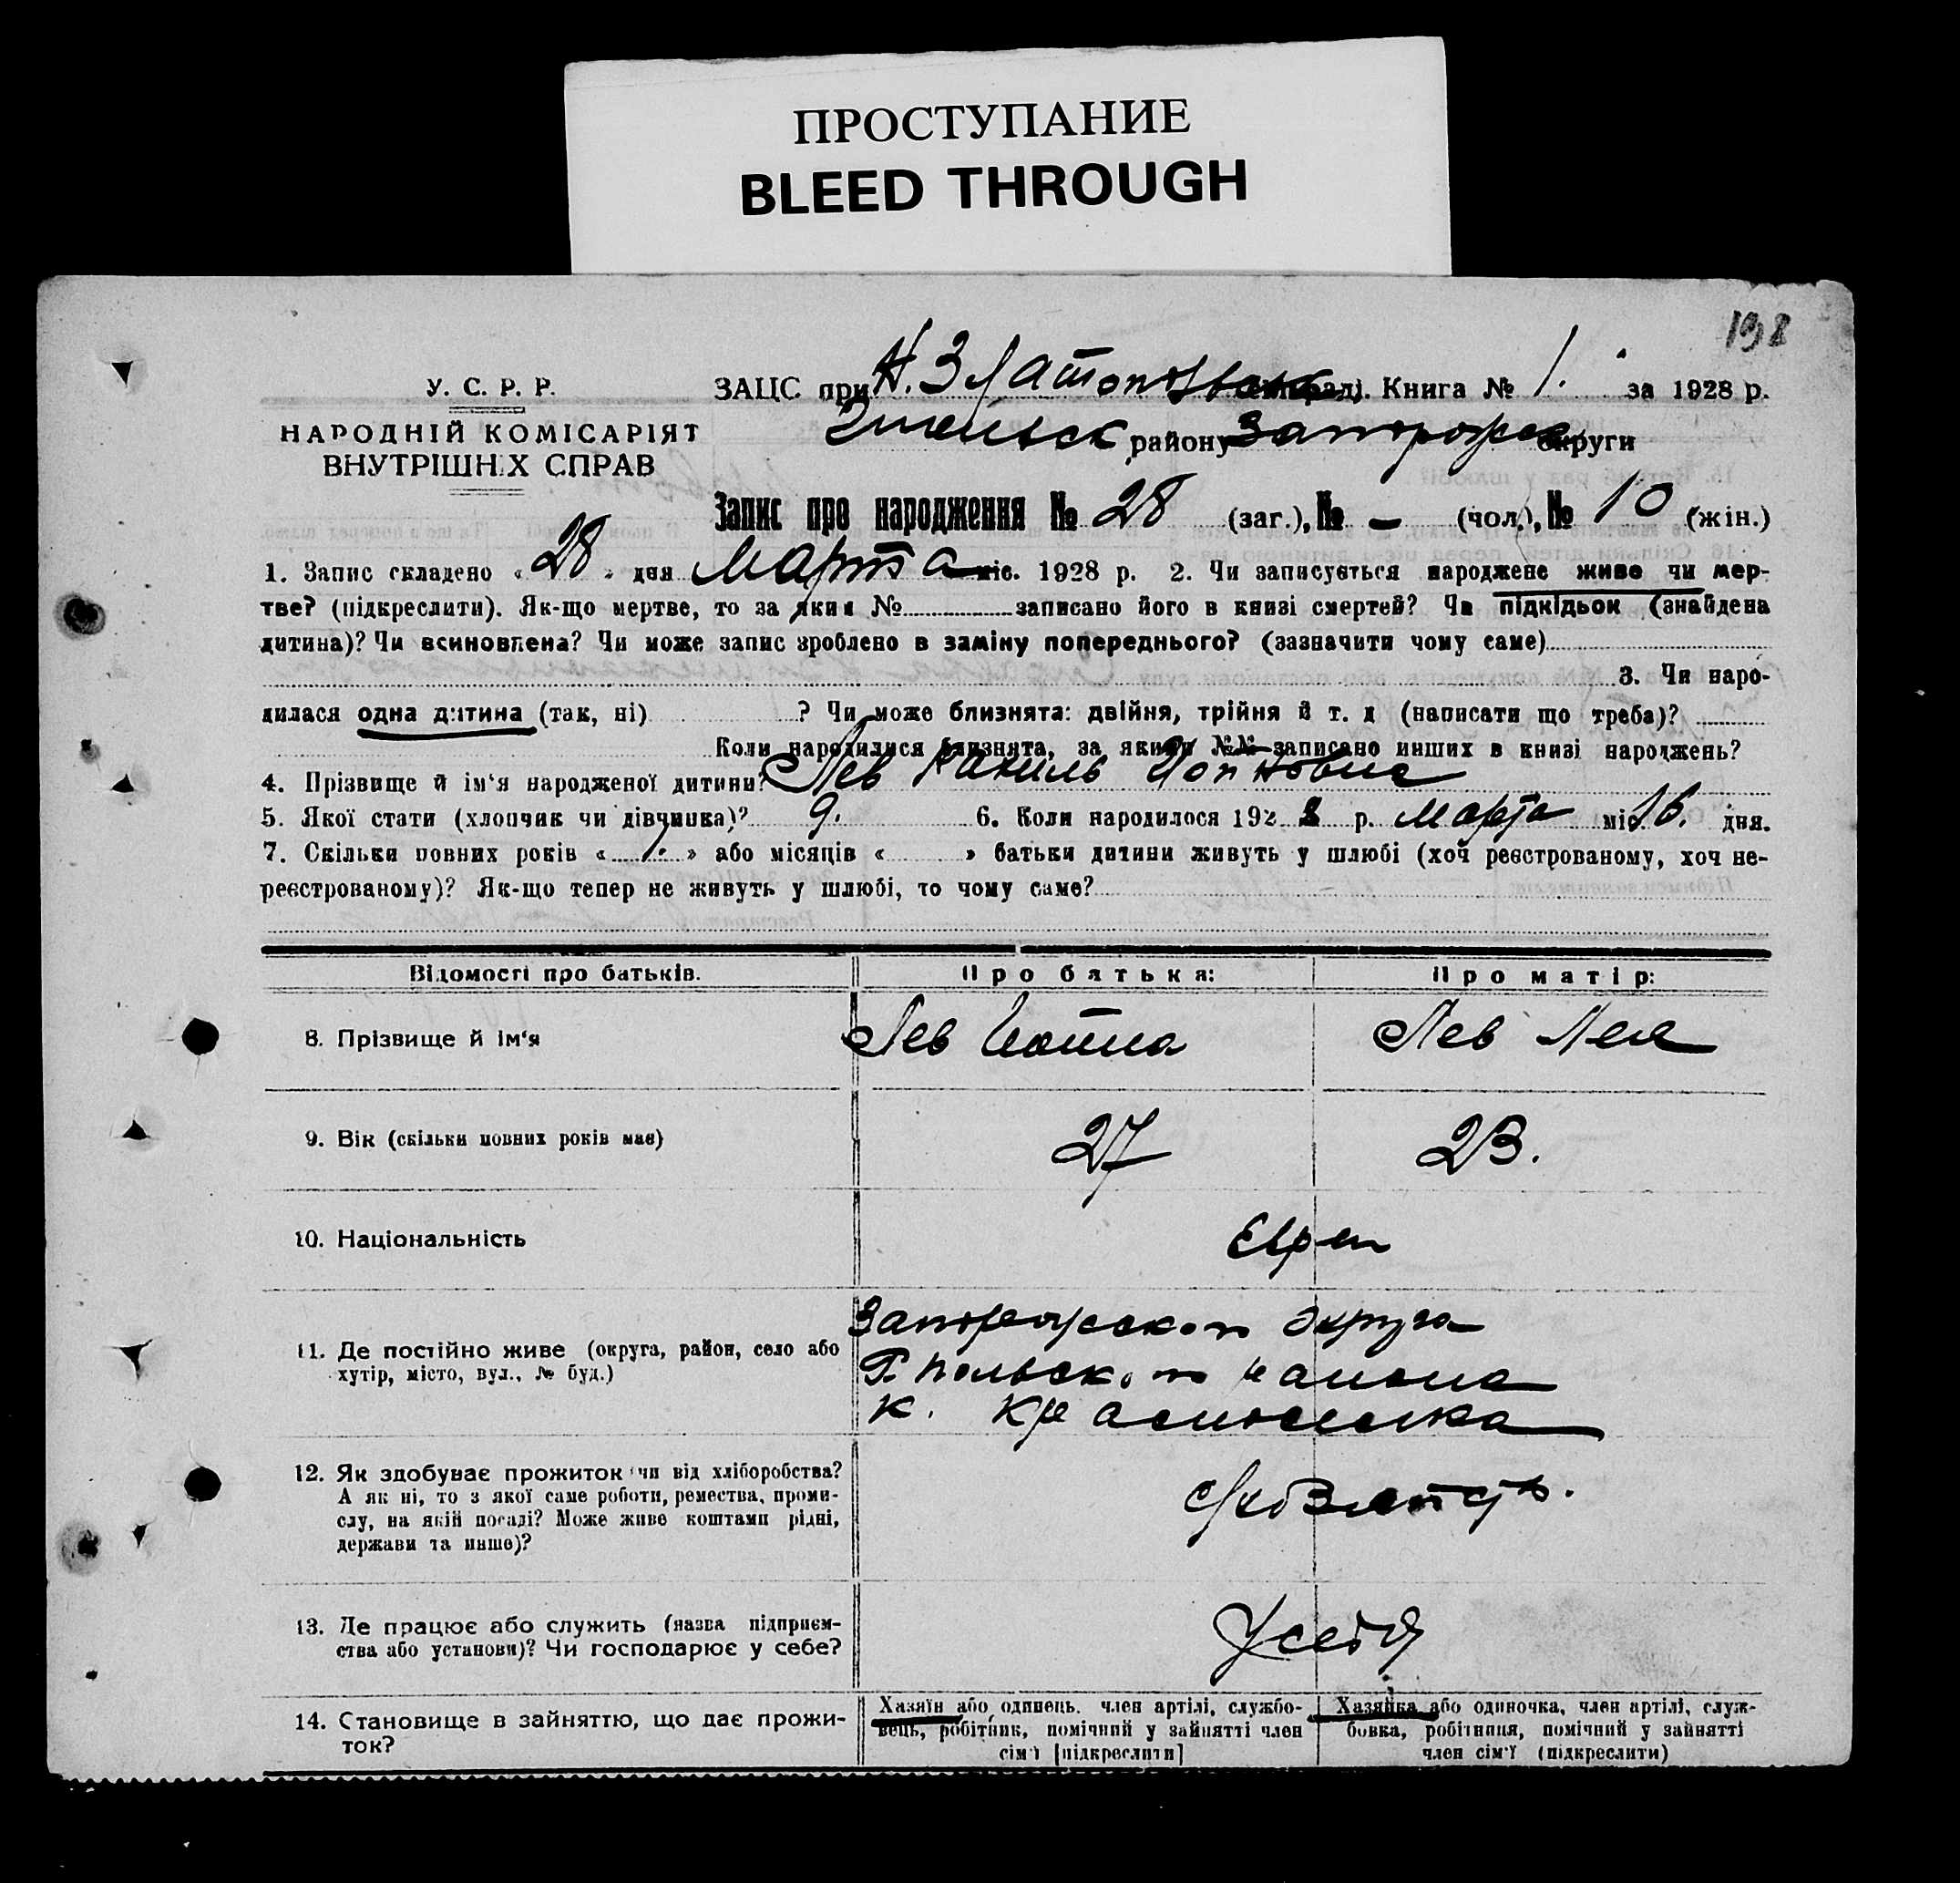 ПРОСТУПАНИЕ
BLEED THROUGH
198
У. С. Р. Р.
НАРОДНІЙ КОМІСАРІЯТ
ВНУТРІШНІХ СПРАВ
ЗАЦС при Н. Златопольск сільраді. Книга № 1. за 1928 р.
району Запорожск округи
Запис про народження № 28 (заг.), № – (чол.), № 10 (жін.)
1. Запис складено «28» дня Марта міс. 1928 р. 2. Чи записується народжене живе чи мер-
тве? (підкреслити). Як-що мертве, то за яким № записано його в книзі смертей? Чи підкідьок (знайдена
дитина)? Чи всиновлена? Чи може запис зроблено в заміну попереднього? (зазначити чому саме)
3. Чи наро-
дилася одна дитина (так, ні) ? Чи може близнята: двійня, трійня й т. д (написати що треба)?
Коли народилися близнята, за якими №№ записано инших в книзі народжень?
4. Прізвище й ім'я народженої дитини? Лев
5. Якої стати (хлопчик чи дівчинка)? 9. 6. Коли народилося 1928 р. Марта міс. 16. дня.
7. Скільки повних років «1.» або місяців « » батьки дитини живуть у шлюбі (хоч реєстрованому, хоч не-
реєстрованому)? Як-що тепер не живуть у шлюбі, то чому саме?
Відомості про батьків. Про батька: Про матір:
8. Прізвище й ім'я Лев Лев Лея
9. Вік (скільки повних років має) 27 23.
10. Національність Евреи
11. Де постійно живе (округа, район, село або
хутір, місто, вул., № буд.)
Запорожского округа
Г. польского района
к. Красноселка
12. Як здобуває прожиток чи від хліборобства?
А як ні, то з якої саме роботи, ремества, проми-
слу, на якій посаді? Може живе коштами рідні,
держави та инше)?
13. Де працює або служить (назва підприєм-
ства або установи)? Чи господарює у себе?
У себя
14. Становище в зайняттю, що дає прожи-
ток?
Хазяїн або одинець, член артілі, службо-
вець, робітник, помічний у зайнятті член
сім'ї [підкреслити]
Хазяйка або одиночка, член артілі, служ-
бовка, робітниця, помічний у зайнятті
член сім'ї (підкреслити)